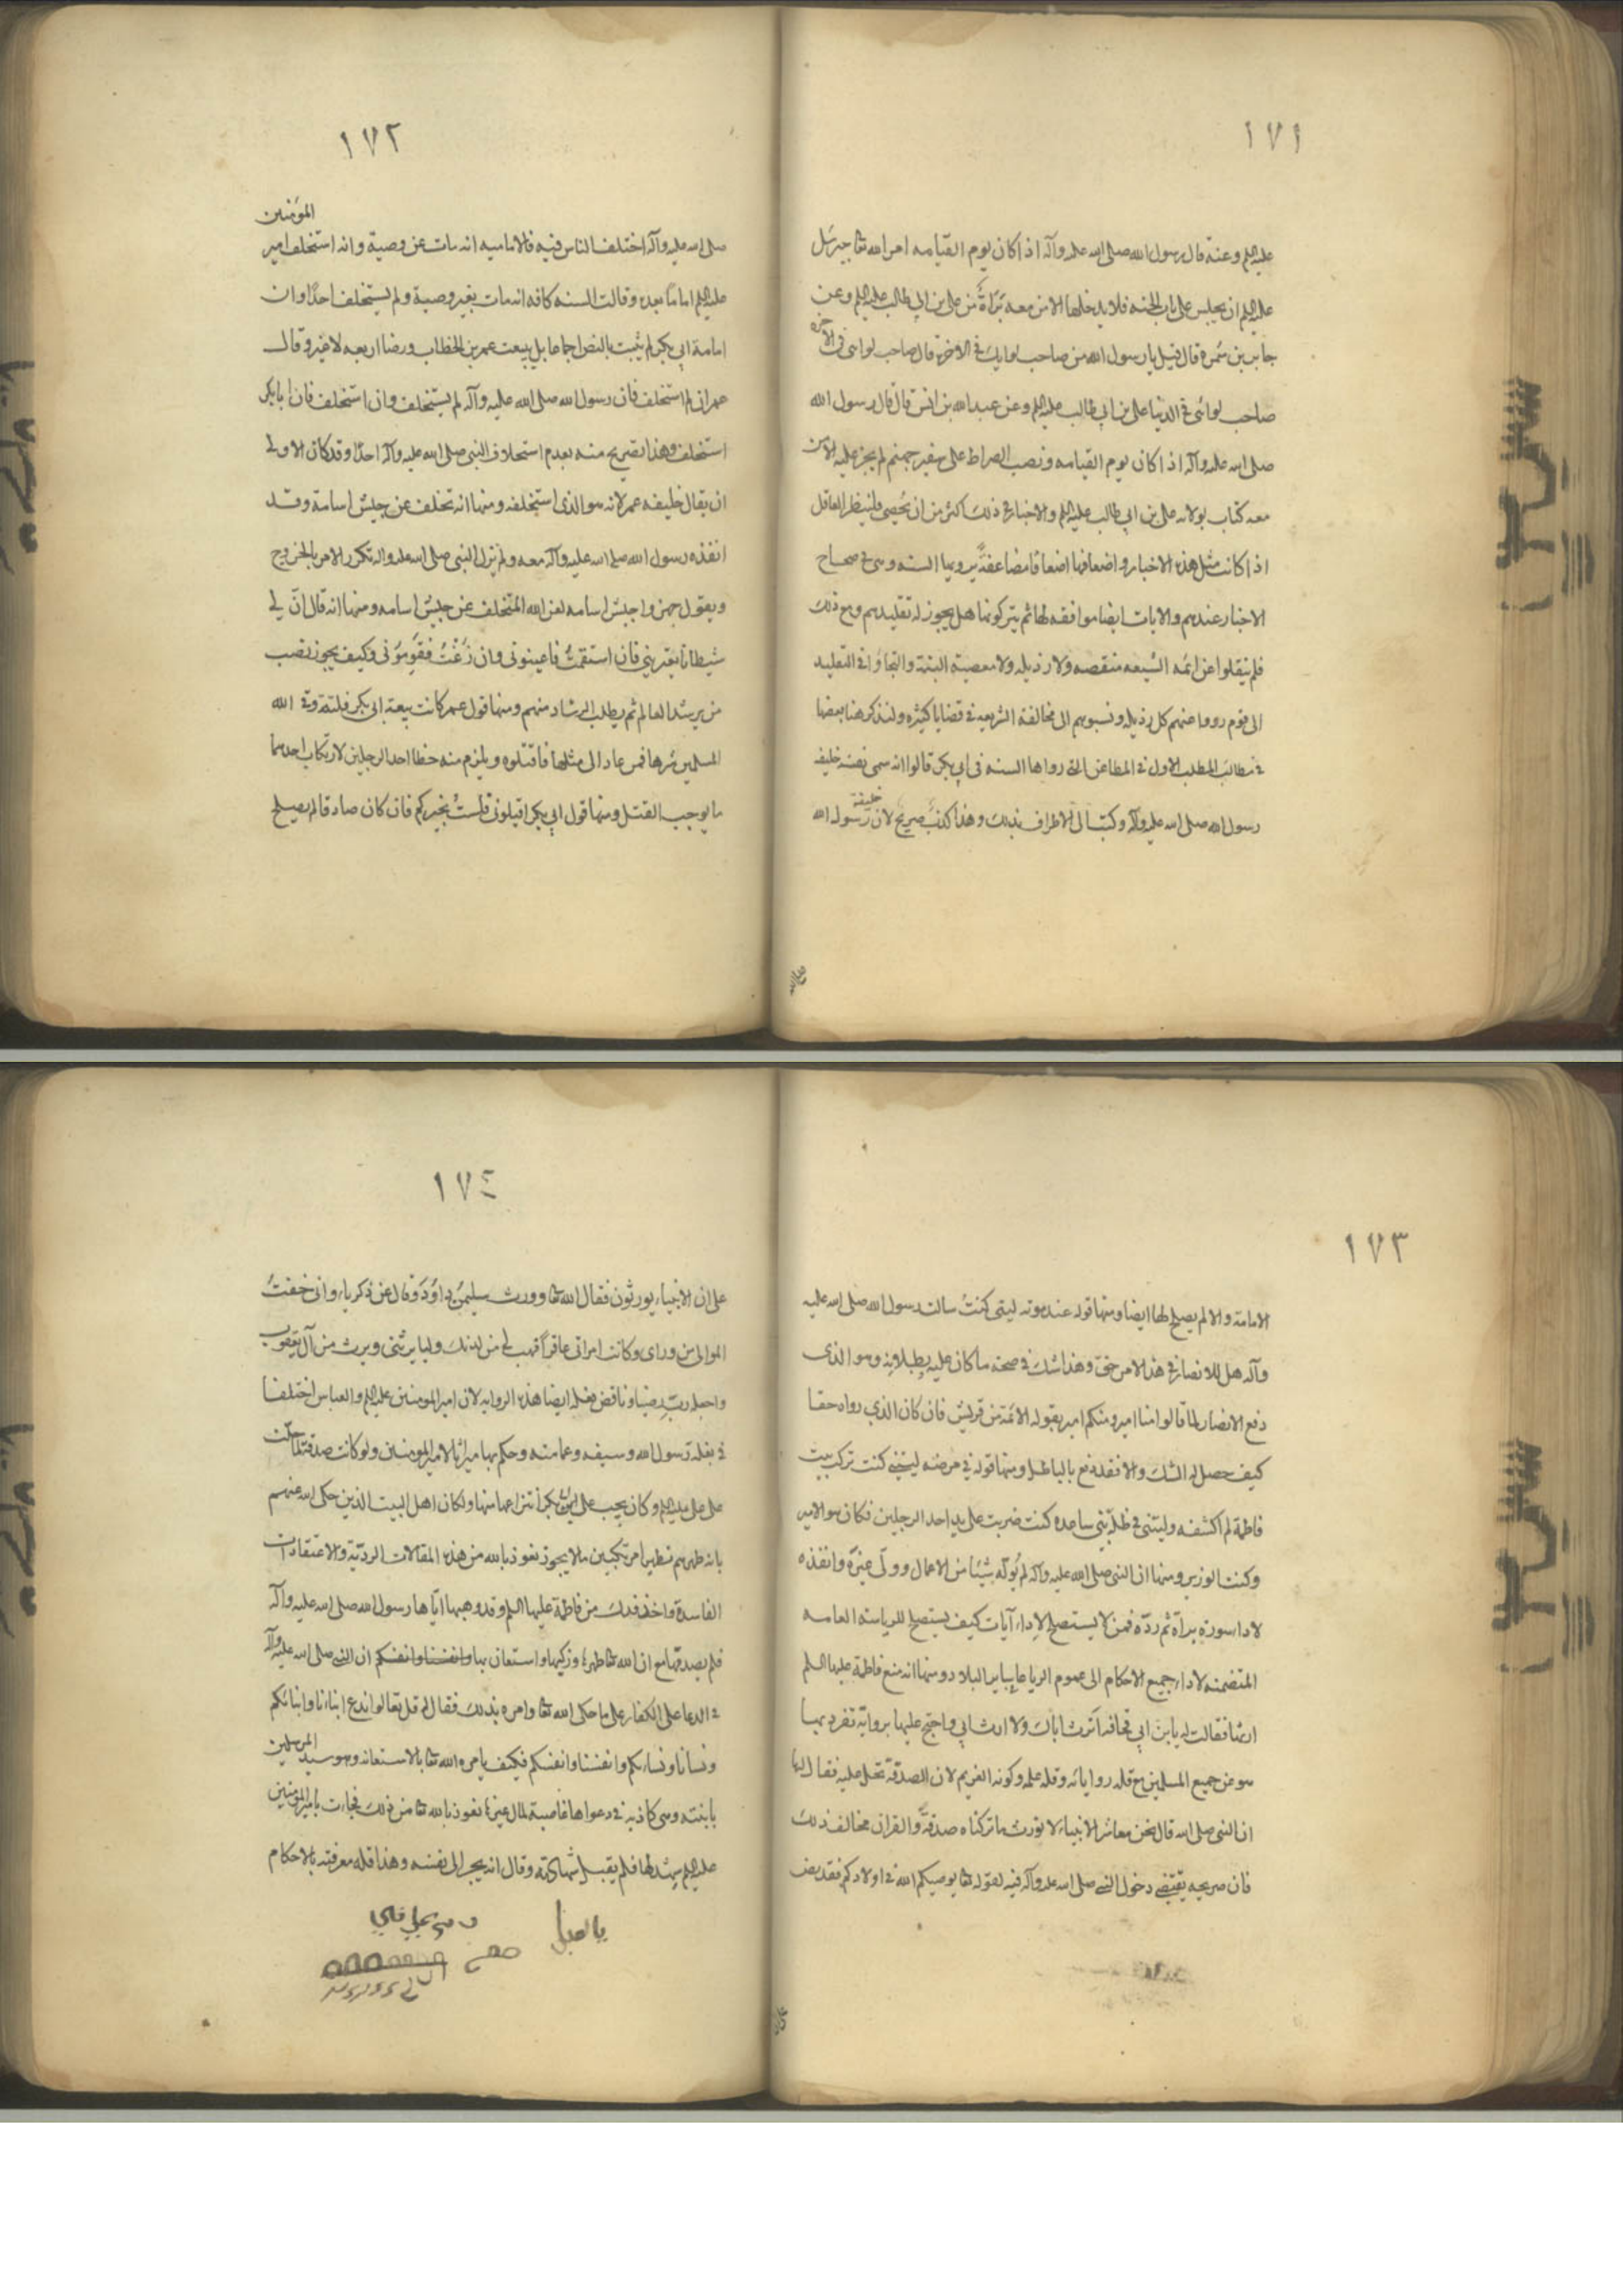 ١٧١
عليه السلم وعنه قال رسول الله صلى الله عليه وآله اذا كان يوم القيامه امر الله تعا جبرئيل
عليه السلم ان يجلس على باب الجنه فلا يدخلها الا من معه براءة من على بن ابي طالب عليه السلم وعن
جابر بن سمرة قال قيل يا رسول الله من صاحب لوايك في الاخرة قال صاحب لوائى فى الاخره
صاحب لوائى في الدنيا على بن ابي طالب عليه السلم وعن عبد الله بن انس قال قال رسول الله
صلى الله عليه وآله اذا كان يوم القيامه ونصب الصراط على شفير جهنم لم يجز عليه الا من
معه كتاب بولاية على بن ابي طالب عليه السلم والاخبار في ذلك اكثر من ان تحصى فلينظر العاقل
اذا كانت مثل هذه الاخبار واضعافها اضعافا مضاعفة يرويها السنه وهى في صحاح
الاخبار عندهم والايات ايضا موافقه لها ثم يتركونها هل يجوز له تقليدهم ومع ذلك
فلم ينقلوا عن ائمه الشيعه منقصه ولا رذيله ولا معصية البتة والتجاؤا في التقليد
الى قوم رووا عنهم كل رذيله ونسبوهم الى مخالفة الشريعه في قضايا كثيره ولنذكر هنا بعضها
في مطالب المطلب الاول في المطاعن التي رواها السنه فى ابي بكر قالوا انه سمى نفسه خليفه
رسول الله صلى الله عليه وآله وكتب الى الاطراف بذلك وهذا كذب صريح لان خليفة رسول الله
١٧٢
صلى الله عليه وآله اختلف الناس فيه فالاماميه انه مات عن وصية وانه استخلف امير المؤمنين
عليه السلم اماما بعده وقالت السنه كافه انه مات بغير وصية ولم يستخلف احدا وان
امامة ابي بكر لم يثبت بالنص اجماعا بل ببيعت عمر بن الخطاب ورضا اربعه لا غير وقال
عمر ان لم استخلف فان رسول الله صلى الله عليه وآله لم يستخلف وان استخلف فان ابا بكر
استخلف وهذا تصريح منه بعدم استخلاف النبي صلى الله عليه وآله احدا وقد كان الاولى
ان يقال خليفه عمر لانه هو الذى استخلفه ومنها انه تخلف عن جيش اسامة وقد
انفذه رسول الله صلى الله عليه وآله معه ولم يزل النبي صلى الله عليه واله تكرر الامر بالخروج
ويقول جهزوا جيش اسامه لعن الله المتخلف عن جيش اسامه ومنها انه قال ان لي
شيطانا يعتريني فان استقمت فاعينونى وان زغت فقومونى وكيف يجوز نصب
من يرشد العالم ثم يطلب الرشاد منهم ومنها قول عمر كانت بيعة ابى بكر فلتة وقى الله
المسلمين شرها فمن عاد الى مثلها فاقتلوه ويلزم منه خطا احد الرجلين لارتكاب احدهما
ما يوجب القتل ومنها قول ابي بكر اقيلونى فلست بخيركم فان كان صادقا لم يصلح
١٧٣
الامامة والا لم يصلح لها ايضا ومنها قوله عند موته ليتنى كنت سالت رسول الله صلى الله عليه
وآله هل للانصار في هذا الامر حق وهذا شك في صحة ما كان عليه وبطلانه وهو الذى
دفع الانصار لما قالوا منا امير ومنكم امير بقوله الائمة من قريش فان كان الذي رواه حقا
كيف حصل له الشك والا فقد دفع بالباطل ومنها قوله في مرضه ليتنى كنت تركت بيت
فاطمة لم اكشفه وليتنى في ظلة بنى ساعده كنت ضربت على يد احد الرجلين فكان هو الامير
وكنت الوزير ومنها ان النبى صلى الله عليه وآله لم يوله شيئا من الاعمال وولى غيره وانفذه
لاداء سورة براة ثم رده فمن لا يستصلح لاداء آيات كيف يستصلح للرياسة العامه
المتضمنه لاداء جميع الاحكام الى عموم الرعايا بساير البلاد ومنها انه منع فاطمة عليها السلم
ارثها فقالت له يا بن ابي قحافه اترث اباك ولا ارث ابي واحتج عليها برواية تفرد بها
هو عن جميع المسلمين مع قله رواياته وقله علمه وكونه الغريم لان الصدقة تحل عليه فقال لها
ان النبي صلى الله قال نحن معاشر الانبياء لا نورث ما تركناه صدقة والقران مخالف ذلك
فان صريحه يقتضى دخول النبى صلى الله عليه وآله فيه لقوله تعا يوصيكم الله فى اولادكم فقد نص
١٧٤
على ان الانبياء يورثون فقال الله تعا وورث سليمن داود وقال عن ذكرياء وانى خفت
الموالى من وراى وكانت امراتى عاقرا فهب لى من لدنك وليا يرثنى ويرث من آل يعقوب
واجعله رب رضيا وناقض فعله ايضا هذه الروايه لان امير المومنين عليه السلم والعباس اختلفا
فى بغلة رسول الله وسيفه وعمامته وحكم بها ميراثا لامير المومنين ولو كانت صدقة لما حلت
على على عليه السلم وكان يجب على ابي بكر انتزاعها منها ولكان اهل البيت الذين حكى الله عنهم
بانه طهرهم تطهيرا مرتكبين ما لا يجوز نعوذ بالله من هذه المقالات الرديّة والاعتقادات
الفاسدة واخذ فدك من فاطمة عليها السلم وقد وهبها اياها رسول الله صلى الله عليه وآله
فلم يصدقها مع ان الله تعا طهرها وزكيها واستعان بها وانفسنا وانفسكم ان النبى صلى الله عليه وآله
فى الدعا على الكفار على ما حكى الله تعا وامره بذلك فقال له قل تعالوا ندع ابناءنا وابنائكم
ونسانا ونساءكم وانفسنا وانفسكم فكيف يامره الله تعا بالاستعانه وهو سيد المرسلين
بابنته وهى كاذبه فى دعواها غاصبة لمال غيرها نعوذ بالله تعا من ذلك فجاءت بامير المؤمنين
عليه السلم يشهد لها فلم يقبل شهادته وقال انه يجر الى نفسه وهذا قله معرفته بالاحكام